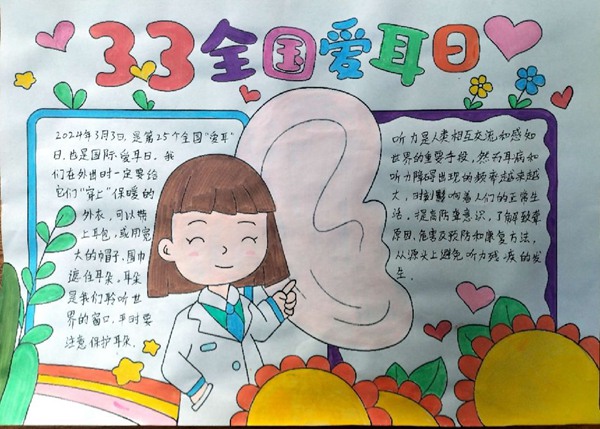 3.3全国爱耳日
2024年3月3日,是第25个全国"爱耳"
日,也是国际爱耳日。我
们在外出时一定要给
它们"穿上"保暖的
外衣,可以带
上耳包,或用宽
大的帽子、围巾
遮住耳朵。耳朵
是我们聆听世
界的窗口,平时要
注意保护耳朵。
听力是人类相互交流和感知
世界的重要手段,然而耳病和
听力障碍出现的频率越来越
大,时刻影响着人们的正常生
活,提高防聋意识,了解致聋
原因,危害及预防和康复方法,
从源头上避免听力残疾的发
生.